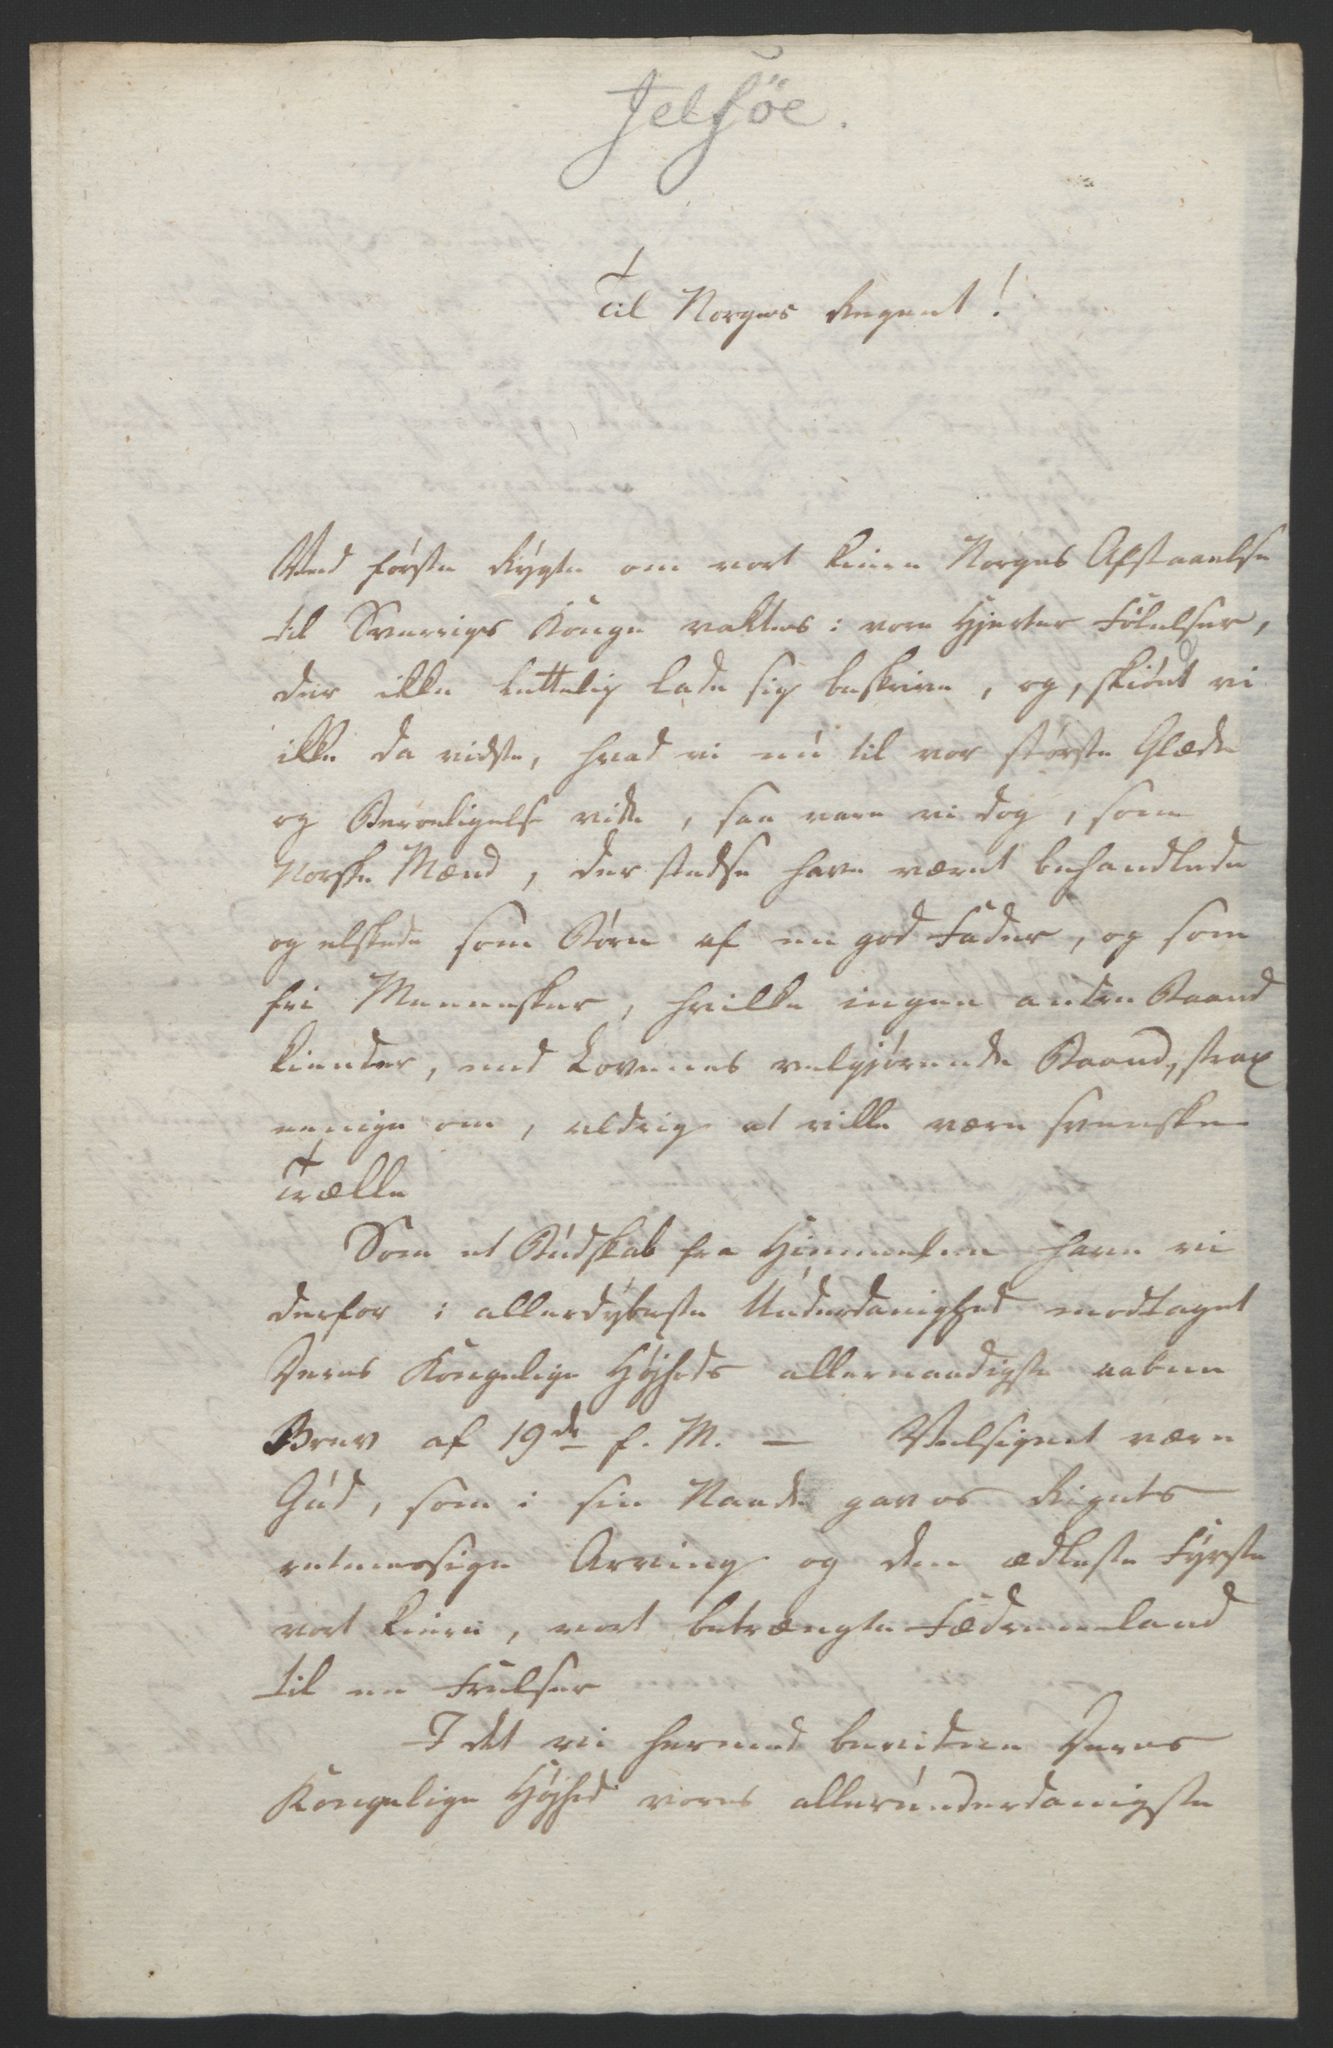 Jelsøe.
Til Norges Regent!
Ved første Rÿgte om vort kiere Norges Afstaaelse
til Sverriges Konge vaktes i vore Hjerter Følelser,
der ikke lettelig lade sig beskrive, og, skiøndt vi
ikke da vidste, hvad vi nu til vor største Glæde
og Beroeligelse vide, saa vare vi dog, som
Norske Mænd, der stedse have været behandlede
og elskede som Børn af en god Fader, og som
frie Mennesker, hvilke ingen anden Baand
kiender, end Lovenes velgjørende Baand, strax
eenige om, aldrig at ville være svenske
Trælle
Som et Budskab fra Himmelen have vi
derfor i allerdÿbeste Underdanighed modtaget
Deres Kongelige Højheds allernaadigste aabne
Brev af 19de f. M. — Velsignet være
Gud, som i sin Naade gav os Rigets
retmessige Arving og den ædleste Fÿrste
vort kiere, vort betrængte Fædreneland
til en Frelser
I det vi hermed bevidne Deres
Kongelige Højhed vores allerunderdanigste